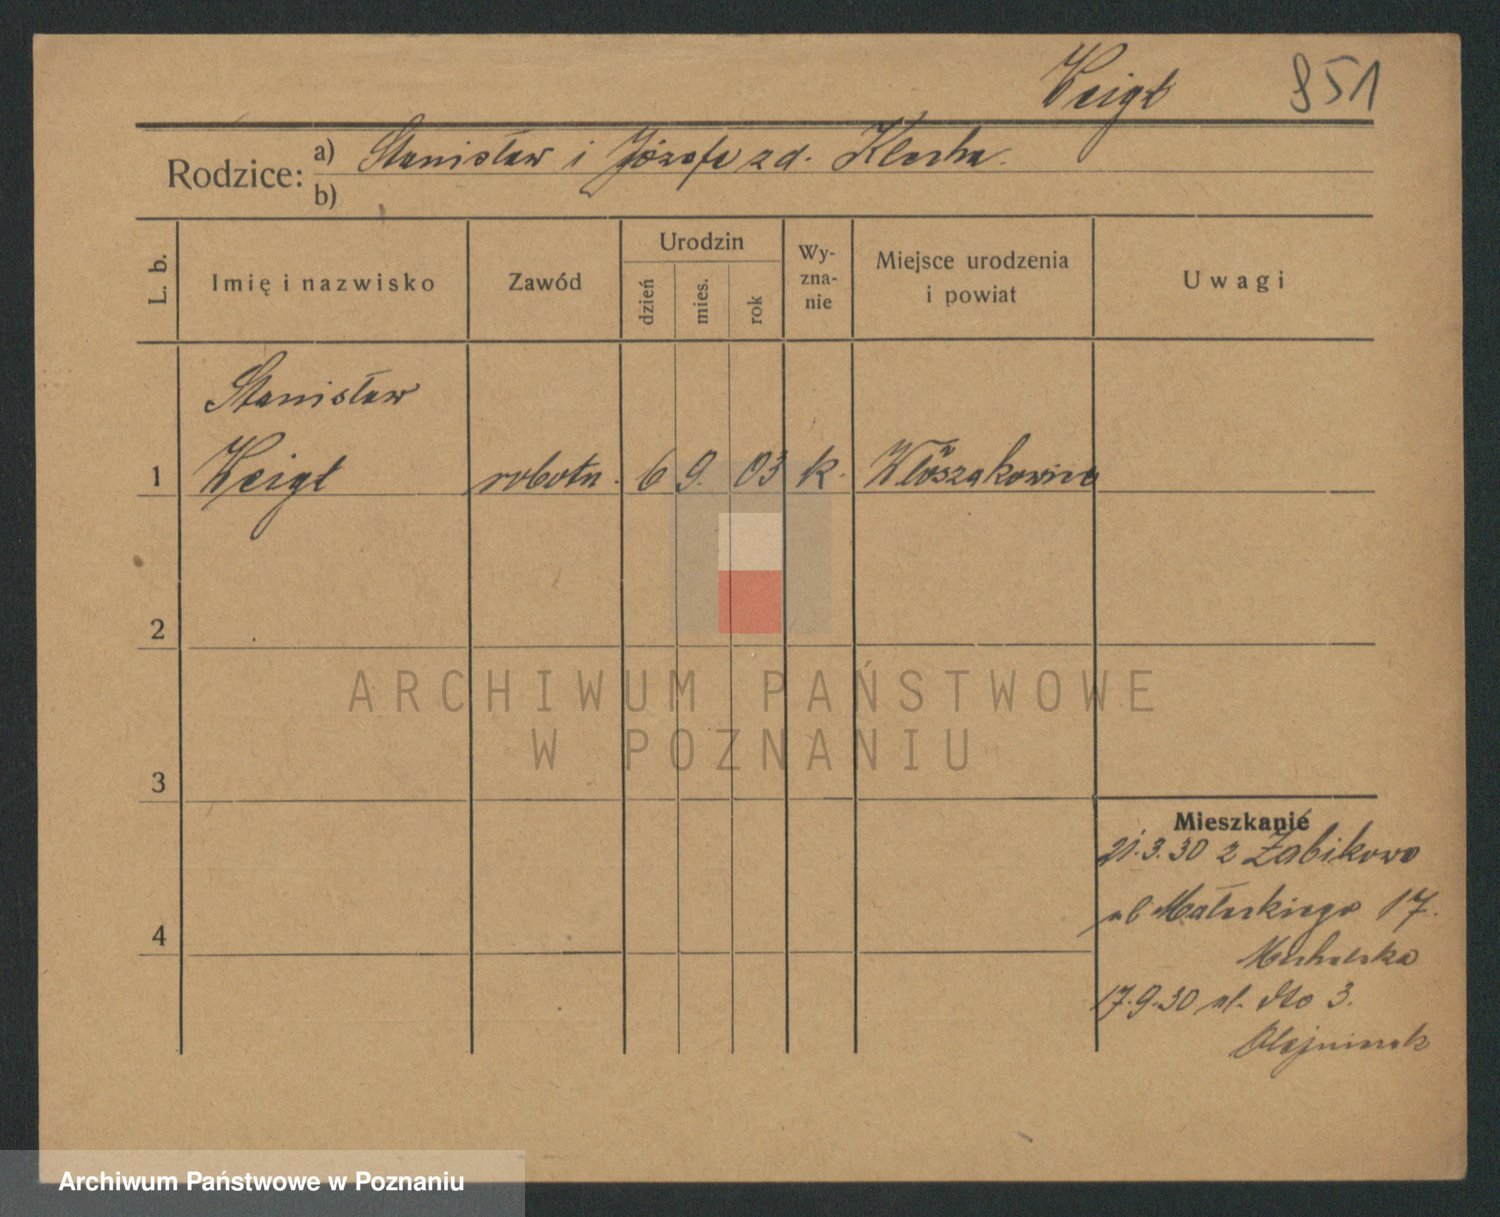 Weigt 851
Rodzice: a) Stanisław i Józefa zd. Klecha.
b)
L. b.
Imię i nazwisko
Zawód
Urodzin
dzień
mies.
rok
Wy-
zna-
nie
Miejsce urodzenia
i powiat
Uwagi
Stanisław
1 Weigt robotn. 6 9. 03 k. Włoszakowice
2
3
4
Mieszkanie
21.3.30 z Żabikowo
ul Małeckiego 17.
17.9.30 ul. dto 3.
Olejniczak
ARCHIWUM PAŃSTWOWE
W POZNANIU
Archiwum Państwowe w Poznaniu